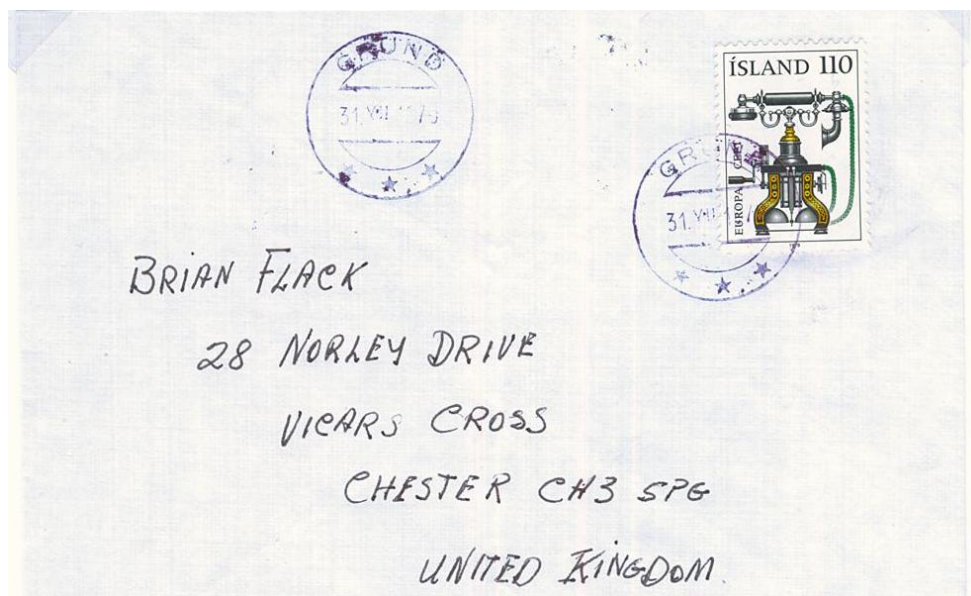 GRUND
ÍSLAND 110
EUROPA CEPT
GRUND
BRIAN FLACK
28 NORLEY DRIVE
VICARS CROSS
CHESTER CH3 5PG
UNITED KINGDOM